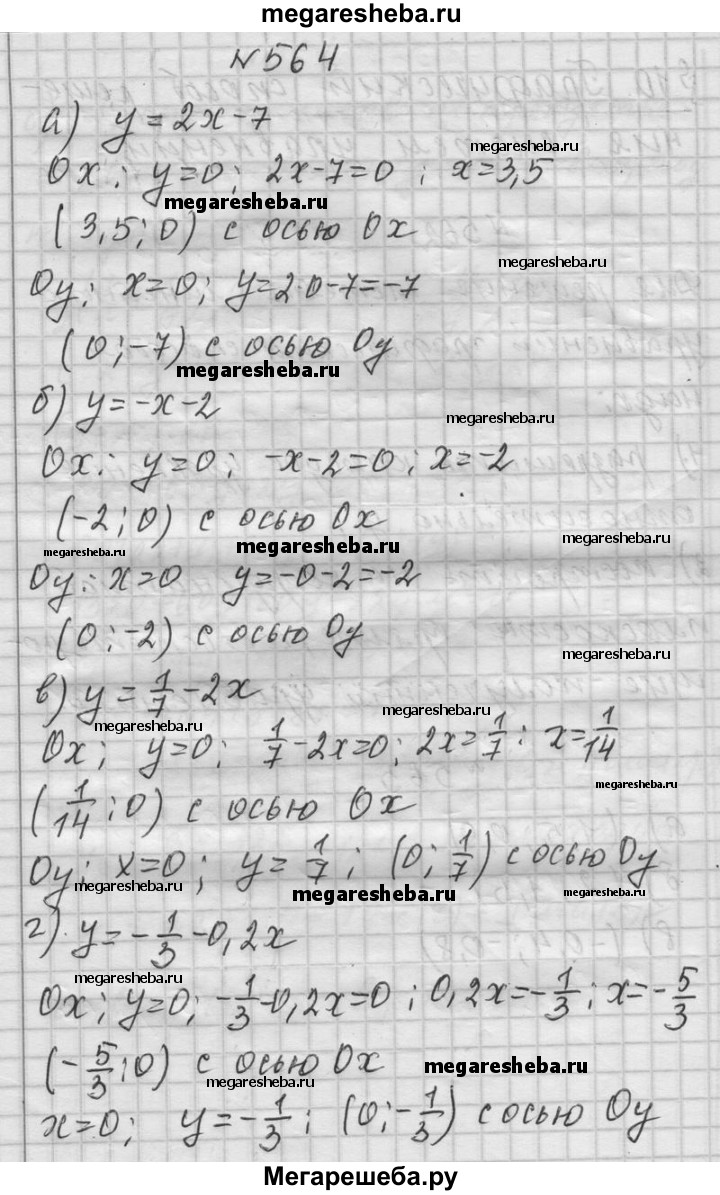 megaresheba.ru
№564
а) y = 2x - 7
megaresheba.ru
Ox; y=0; 2x-7=0; x=3,5
megaresheba.ru
(3,5; 0) с осью Ox
megaresheba.ru
Oy; x=0; y=2·0-7=-7
(0; -7) с осью Oy
megaresheba.ru
б) y=-x-2
megaresheba.ru
Ox: y=0; -x-2=0; x=-2
(-2; 0) с осью Ox
megaresheba.ru
megaresheba.ru
megaresheba.ru
Oy: x=0 y=-0-2=-2
(0; -2) с осью Oy
megaresheba.ru
в) y = 1/7 - 2x
megaresheba.ru
megaresheba.ru
Ox; y=0; 1/7 - 2x=0; 2x = 1/7; x = 1/14
megaresheba.ru
(1/14; 0) с осью Ox
Oy; x=0; y = 1/7; (0; 1/7) с осью Oy
megaresheba.ru
megaresheba.ru
megaresheba.ru
г) y = -1/3 - 0,2x
megaresheba.ru
Ox; y=0; -1/3 -0,2x=0; 0,2x=-1/3; x=-5/3
(-5/3; 0) с осью Ox
megaresheba.ru
megaresheba.ru
x=0; y=-1/3; (0; -1/3) с осью Oy
Мегарешеба.ру